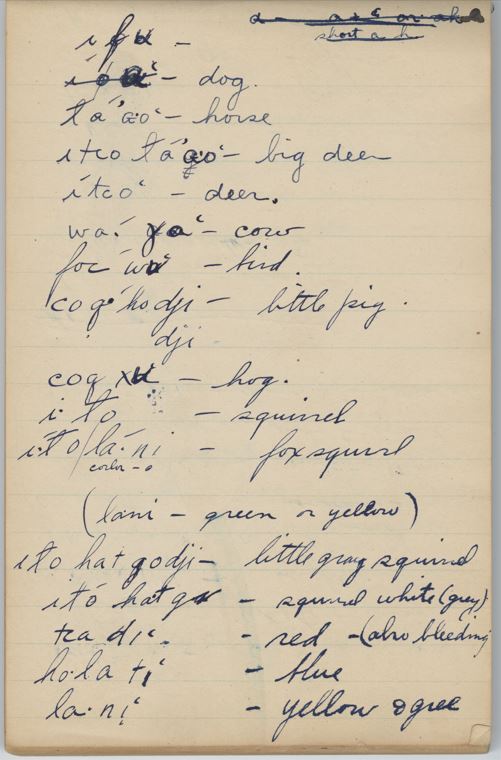 short a h
ifa -
- dog.
tá'co' - horse
itco tá'co' - big deer
ítco' - deer.
wa· - cow
foc - bird.
coq'hodji - little pig.
dji
coq - hog.
i·to - squirrel
i·to/lá·ni - fox squirrel
color - o
(lani - green or yellow)
ito hat godji - little gray squirrel
itó hatga - squirrel white (grey)
tca di·. - red - (also bleeding
ho·la ti' - blue
la·ni' - yellow & gree